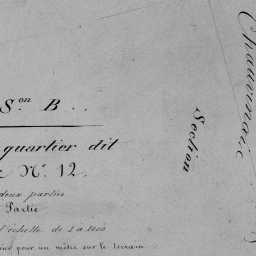 Son B.
quartier dit
No. 12.
deux parties
Partie
l'échelle de 1 à
pour un mètre sur le terrain
Section